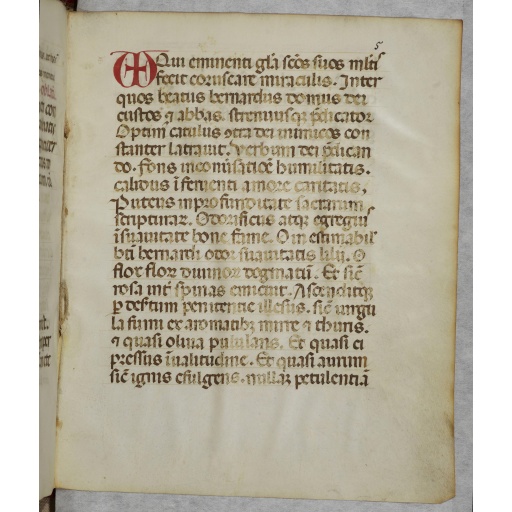 5
Qui eminenti gl̃a sc̃os suos ml̃ti
fecit coruscare miraculis. Inter
quos beatus bernardus domus dei
custos ⁊ abbas. strenuusqꝫ p̃dicator
Optim catulus ꝯtra dei inimicos con
stanter latrauit. verbum dei p̃dican
do. fons in humilitatis.
calidus ĩ feruenti amore caritatis.
Puteus in profunditate sacrarum
scripturaꝝ. Odorificus atqꝫ egregius
ĩ suauitate bone fame. O inestimabil̃
bt̃i bernardi odor suauitatis lilij. O
flos floꝝ diuinoꝝ dogmatũ. Et sic̃
rosa int̃ spinas emicuit. Ascenditqꝫ
ꝑ des̃tum penitentie illesus. sic̃ uirgu
la fumi ex aromatibꝫ mirre ⁊ thuris.
⁊ quasi oliua pululans. Et quasi ci
pressus ĩ ualitudine. Et quasi aurum
sic̃ ignis efulgens. nullaꝝ petulentiã